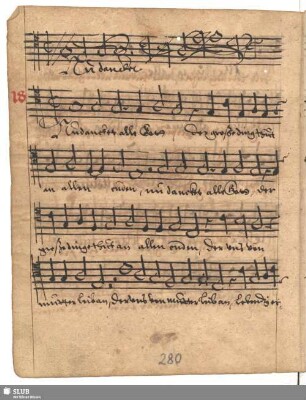 Nu dancket
18
Nu dancket alle Gott der große dinge thut
an allen enden, nu dancket alle Gott der
große dinge thut an allen enden, der uns von
mutter leib an, der uns von mutter leib an, lebendig er
280
SLUB